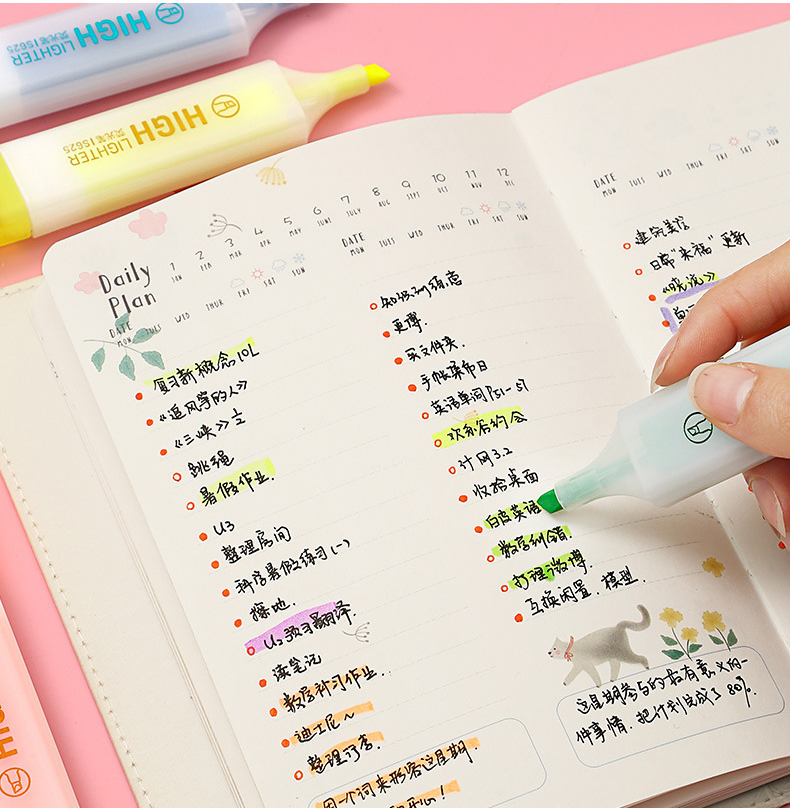 HIGH
LIGHTER
荧光笔 | S625
HIGH
LIGHTER
荧光笔 | S625
Daily
Plan
1 2 3 4 5 6 7 8 9 10 11 12
JAN FEB MAR APR MAY JUNE JULY AUG SEP OCT NOV DEC
DATE
MON TUES WED THUR FRI SAT SUN
复习新概念10L
《追风筝的人》
《三峡》
跳绳
暑假作业.
U3
整理房间
科学暑假练习(一)
擦地.
U2预习翻译.
读笔记
数学补习作业.
迪士尼~
整理订杳.
用一个词来形容这星期.
开心!
DATE
MON TUES WED THUR FRI SAT SUN
知识训练营
更博.
买文件夹.
手帐集市日
英语单词P51-57
欢乐谷约会
计网3.2
收拾桌面
白皮英语
数学纠错.
打理微博.
互换闲置.模型.
这星期参与的最有意义的一
件事情.把计划完成了80%.
DATE
MON TUES WED THUR FRI SAT SUN
建筑美信
日常"来福"更新
HIGH